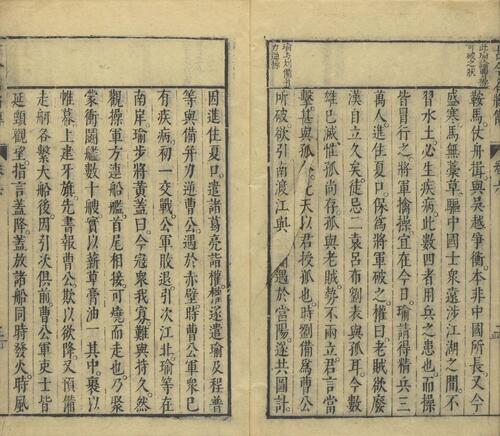 鞍馬仗舟楫與吳越爭衡本非中國所長又今
盛寒馬無藁草驅中國士衆遠涉江湖之間不
習水土必生疾病此數四者用兵之患也而操
皆冒行之將軍擒操宜在今日瑜請得精兵三
萬人進住夏口保為將軍破之權曰老賊欲廢
漢自立久矣徒忌二袁呂布劉表與孤耳今數
雄已滅惟孤尚存孤與老賊勢不兩立君言當
擊甚與孤 此天以君授孤也時劉備為曹公
所破欲引南渡江與 遇於當陽遂共圖計
因進住夏口遣諸葛亮詣權權遂遣瑜及程普
等與備并力逆曹公遇於赤壁時曹公軍衆已
有疾病初一交戰公軍敗退引次江北瑜等在
南岸瑜步將黃蓋曰今寇衆我寡難與持久然
觀操軍方連船艦首尾相接可燒而走也乃聚
蒙衝鬬艦數十艘實以薪草膏油 其中裹以
帷幕上建牙旗先書報曹公欺以欲降又預備
走舸各繫大船後因引次俱前曹公軍吏士皆
延頸觀望指言蓋降蓋放諸船同時發火時風